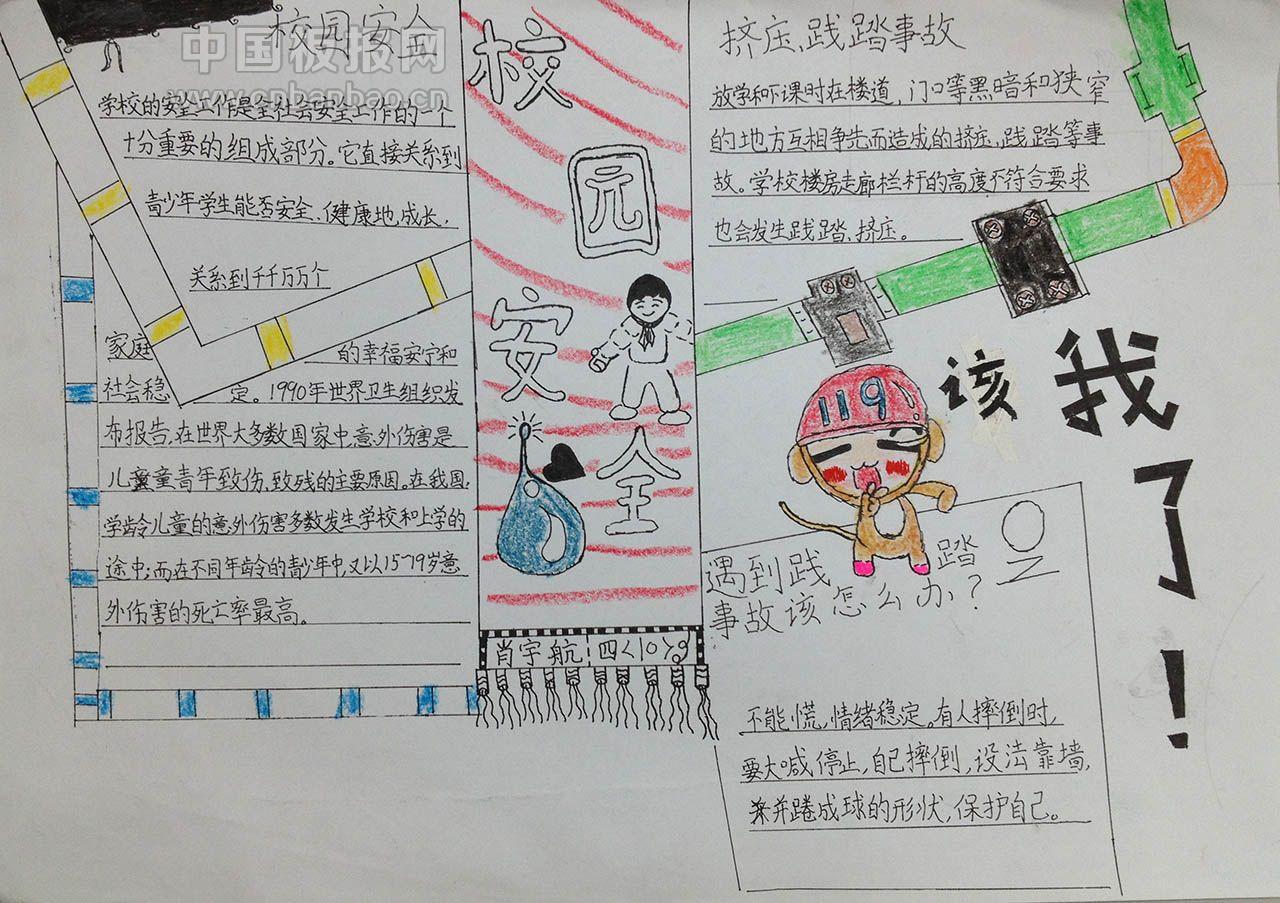 校园安全
中国板报网
www.cnbanbao.cn
学校的安全工作是全社会安全工作的一个
十分重要的组成部分。它直接关系到
青少年学生能否安全、健康地成长，
关系到千千万万个
家庭的幸福安宁和
社会稳定。1990年世界卫生组织发
布报告：在世界大多数国家中，意外伤害是
儿童青年致伤、致残的主要原因。在我国，
学龄儿童的意外伤害多数发生学校和上学的
途中；而在不同年龄的青少年中，又以15-19岁意
外伤害的死亡率最高。
校
元
安
全
肖宇航 四<10>
挤庄、践踏事故
放学和下课时在楼道，门口等黑暗和狭窄
的地方互相争先而造成的挤庄、践踏等事
故。学校楼房走廊栏杆的高度不符合要求
也会发生践踏、挤庄。
119
该我了！
遇到践踏
事故该怎么办？
不能慌，情绪稳定。有人摔倒时，
要大喊停止，自己摔倒，设法靠墙，
并蜷成球的形状，保护自己。